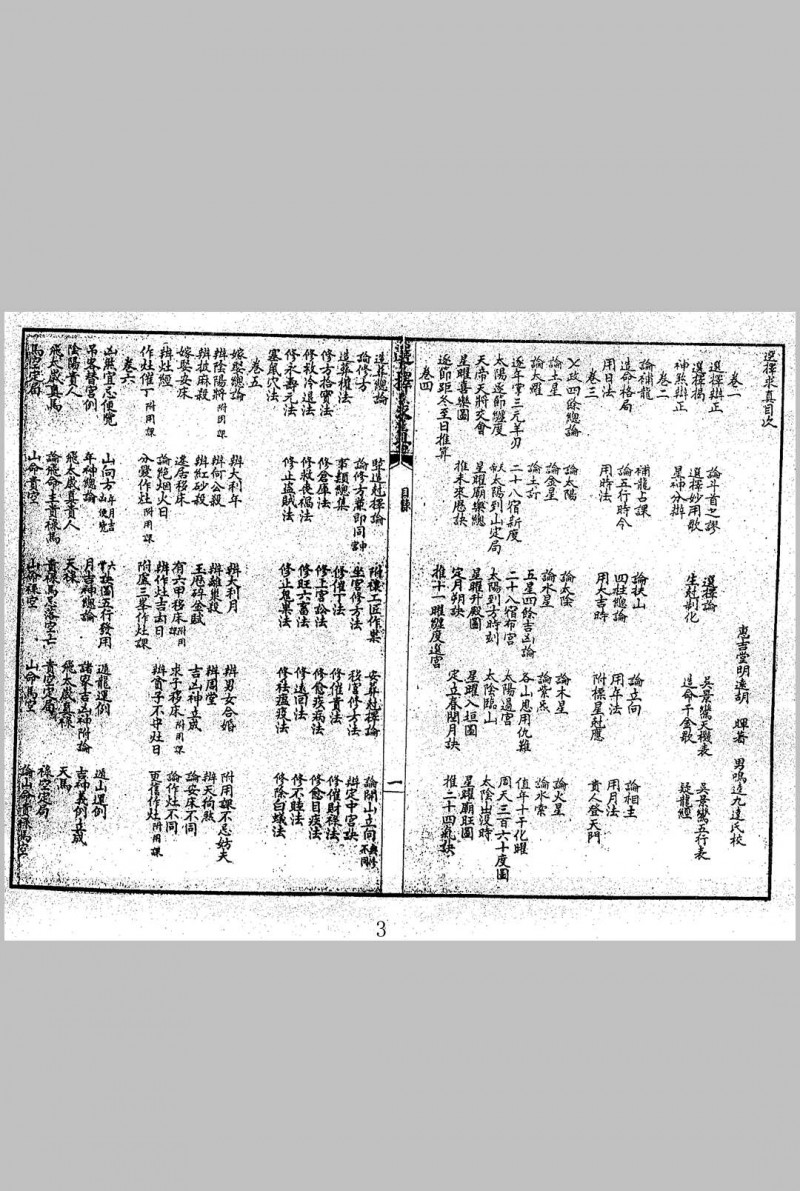 選擇求真目次
惠吉堂明遠胡　暉著　男鳴逵九達氏校
卷一
選擇辯正　論斗首之謬　選擇論　吳景鸞天機表　吳景鸞五行表
選擇揭　選擇妙用歌　生尅制化　造命千金歌　疑龍經
神煞辯正　星神分辯
卷二
論補龍　補龍占課　論扶山　論立向　論相主
造命格局　論五行時令　四柱總論　用年法　用月法
用日法　用時法　用大吉時　附樑星尅應　貴人登天門
卷三
七政四餘總論　論太陽　論太陰　論木星　論火星
論土星　論金星　論水星　論紫炁　論水孛
論天羅　論土計　五星四餘吉凶論　各山恩用仇難　值年十干化曜
逐年掌三元羊刃　二十八宿新度　二十八宿布宮　太陽過宮　周天三百六十度圖
太陽逐節纏度　太陽到山定局　太陽到方時刻　太陰臨山　太陰出没時
天帝天將交會　星曜廟樂總　星曜升殿圖　星曜入垣圖　星曜廟旺圖
星曜喜樂圖　推未來應訣　定月朔訣　定立春閏月訣　推二十四氣訣
逐節距冬至日推算　推十一曜纏度過宮
卷四
造葬總論　豎造尅擇論　附樓工匠作梟　安葬尅擇論　論開山立向與修不同
論修方　論修方兼卽同論　坐宮修方法　移宮修方法　辯定中宮訣
造葬權法　事類總集　修催丁法　修催貴法　修催財祿法
修方捨寶法　修倉庫法　修上官訟法　修愈疾病法　修愈目疾法
修救冷退法　修救喪禍法　修旺六畜法　修逃回法　修不睡法
修永壽元法　修止盜賊法　修止鬼祟法　修祛瘟疫法　修除白蟻法
塞鼠穴法
卷五
嫁娶總論　辯大利年　辯大利月　辯男女合婚　附用課不忌妨夫
辯陰陽將附用課　辯何公殺　辯離巢殺　辯周堂　辯天狗殿
辯披麻殺　辯紅砂殺　王歷碎金賦　吉凶神立成　論安床不同
嫁娶安床　遷居移床　有六甲移床附用課　求子移床附用課　論作灶不同
辯灶經　論絕烟火日　辯作灶吉凶日　辯貧子不守灶日　更信作灶附用課
作灶催丁附用課　分爨作灶附用課　附盧三畢作灶課
卷六
凶煞宜忌便覽　山向方年月吉凶便覽　造龍運例　造山運例
吊宮替宮例　年神總論　月吉神總論　諸家吉凶神附論　吉神義例立成
陰陽貴人　飛太歲真貴人　天祿　飛太歲真祿　天馬
飛太歲真馬　論飛命主貴祿馬　貴祿馬忌落空亡　貴空定局　祿空定局
馬空定局　山命貴空　山命祿空　山命馬空　論山命貴祿馬空
選擇求真
目錄
一
3